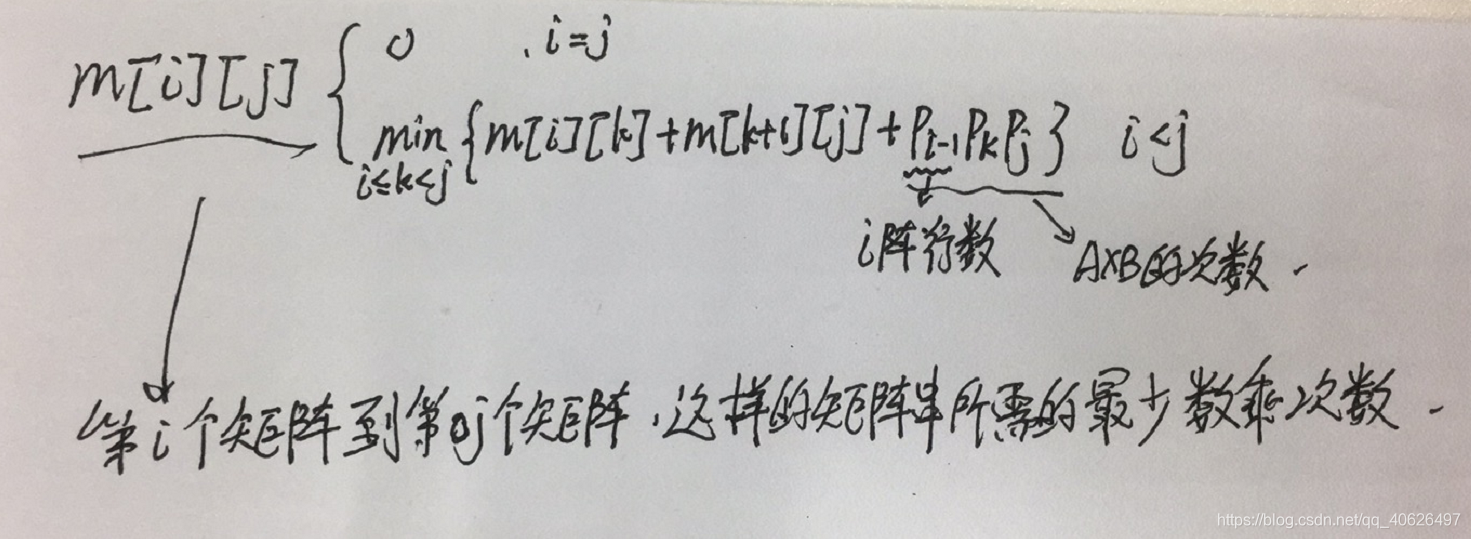 m[i][j] { 0 , i=j
min {m[i][k]+m[k+1][j]+Pi-1PkPj} i<j
i≤k<j
i阵行数
AXB的次数.
第i个矩阵到第j个矩阵,这样的矩阵串所需的最少数乘次数.
https://blog.csdn.net/qq_40626497